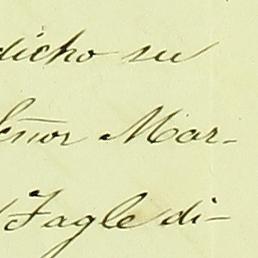 dicho su
Señor Mar-
Tagle di-